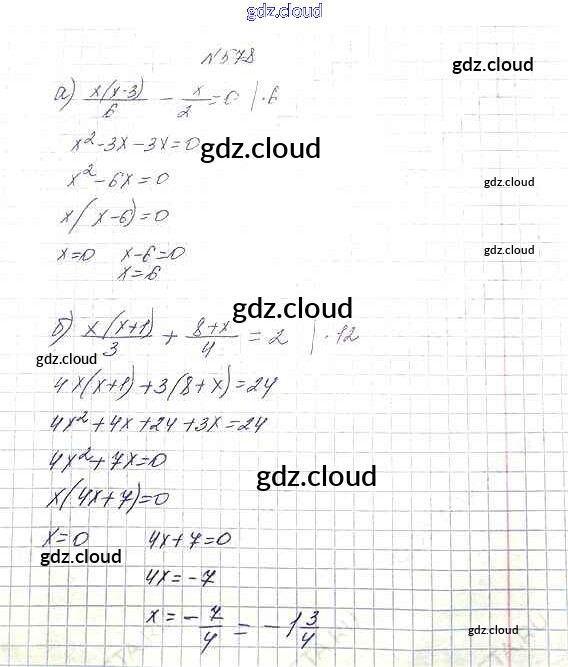 gdz.cloud
N578
gdz.cloud
а) x(x-3)/6 - x/2 = 0 | ·6
x² - 3x - 3x = 0
gdz.cloud
x² - 6x = 0
gdz.cloud
x(x-6) = 0
x=0 x-6=0
gdz.cloud
x=6
gdz.cloud
б) x(x+1)/3 + 8+x/4 = 2 | ·12
gdz.cloud
gdz.cloud
4x(x+1)+3(8+x)=24
4x²+4x+24+3x=24
4x²+7x=0
gdz.cloud
x(4x+7)=0
x=0 4x+7=0
gdz.cloud
gdz.cloud
4x=-7
x = -7/4 = -1 3/4
gdz.cloud